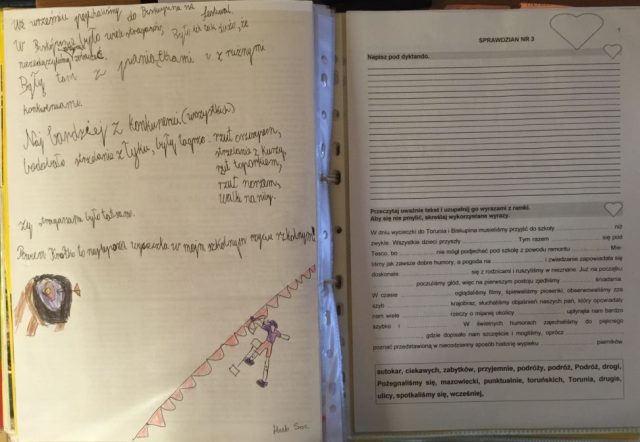 We wrześniu pojechaliśmy do Biskupina na festiwal.
W Biskupinie było wiele straganów, Było ich tak dużo, że
Były tam z pamiątkami i z różnymi
konkurencjami.
Naj bardziej z konkurencji (wszystkich)
strzelanie z łuku, były rzut oszczepem,
strzelanie z kuszy,
rzut toporkiem,
rzut nożem,
walki na
straganami było
to w moim szkolnym życiu szkolnym!
SPRAWDZIAN NR 3
1
Napisz pod dyktando.
Przeczytaj uważnie tekst i uzupełnij go wyrazami z ramki.
Aby się nie pomylić, skreślaj wykorzystane wyrazy.
W dniu wycieczki do Torunia i Biskupina musieliśmy przyjść do szkoły ... niż
zwykle. Wszystkie dzieci przyszły ... Tym razem ... się pod
Tesco, bo ... nie mógł podjechać pod szkołę z powodu remontu ... Mie-
liśmy jak zawsze dobre humory, a pogoda na ... i zwiedzanie zapowiadała się
doskonale. ... się z rodzicami i ruszyliśmy w nieznane. Już na początku
... poczuliśmy głód, więc na pierwszym postoju zjedliśmy ... śniadania.
W czasie ... oglądaliśmy filmy, śpiewaliśmy piosenki, obserwowaliśmy zza
szyb ... krajobraz, słuchaliśmy objaśnień naszych pań, który opowiadały
nam wiele ... rzeczy o mijanej okolicy ... upłynęła nam bardzo
szybko i ... W świetnych humorach zajechaliśmy do pięknego
..., gdzie dopisało nam szczęście i mogliśmy, oprócz ...
poznać przedstawioną w niecodzienny sposób historię wypieku ... pierników
autokar, ciekawych, zabytków, przyjemnie, podróży, podróż, Podróż, drogi,
Pożegnaliśmy się, mazowiecki, punktualnie, toruńskich, Torunia, drugie,
ulicy, spotkaliśmy się, wcześniej,